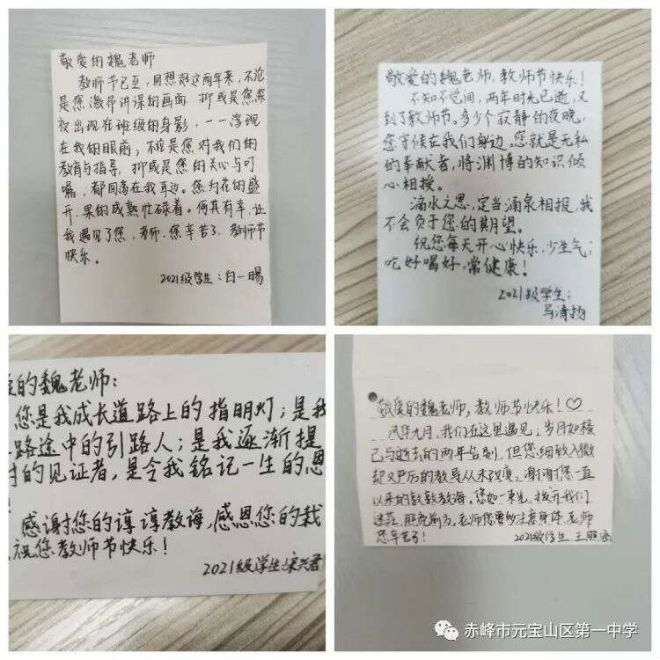 敬爱的魏老师
教师节已至,回想起这两年来,不论
是您激昂讲课的画面 抑或是您深
夜出现在班级的身影,一一浮现
在我的眼前,不论是您对我们的
教育与指导,抑或是您的关心与叮
嘱,都回荡在我耳边。您为花的盛
开,果的成熟忙碌着。何其有幸,让
我遇见了您,老师,您辛苦了,教师节
快乐。
2021级学生:白一赐
敬爱的魏老师,教师节快乐!
不知不觉间,两年时光已逝,又
到了教师节。多少个寂静的夜晚,
您守候在我们身边。您就是无私
的奉献者,将渊博的知识倾
心相授。
滴水之恩,定当涌泉相报,我
不会负于您的期望。
祝您每天开心快乐,少生气;
吃好喝好,常健康!
2021级学生:
马清扬
的魏老师:
您是我成长道路上的指明灯;是我
路途中的引路人;是我逐渐提
的见证者,是令我铭记一生的恩
感谢您的谆谆教诲,感恩您的栽
祝您教师节快乐!
2021级学生:宋兴君
敬爱的魏老师,教师节快乐!♡
九月,我们在这里遇见,岁月如梭
已与逝去的两年告别,但您细致入微
却又严厉的教导从未改变,谢谢您一直
以来的谆谆教诲。您如一束光,拨开我们
迷茫,照亮前方。老师您要多注意身体,老师
您辛苦了!
2021级学生 王照
赤峰市元宝山区第一中学